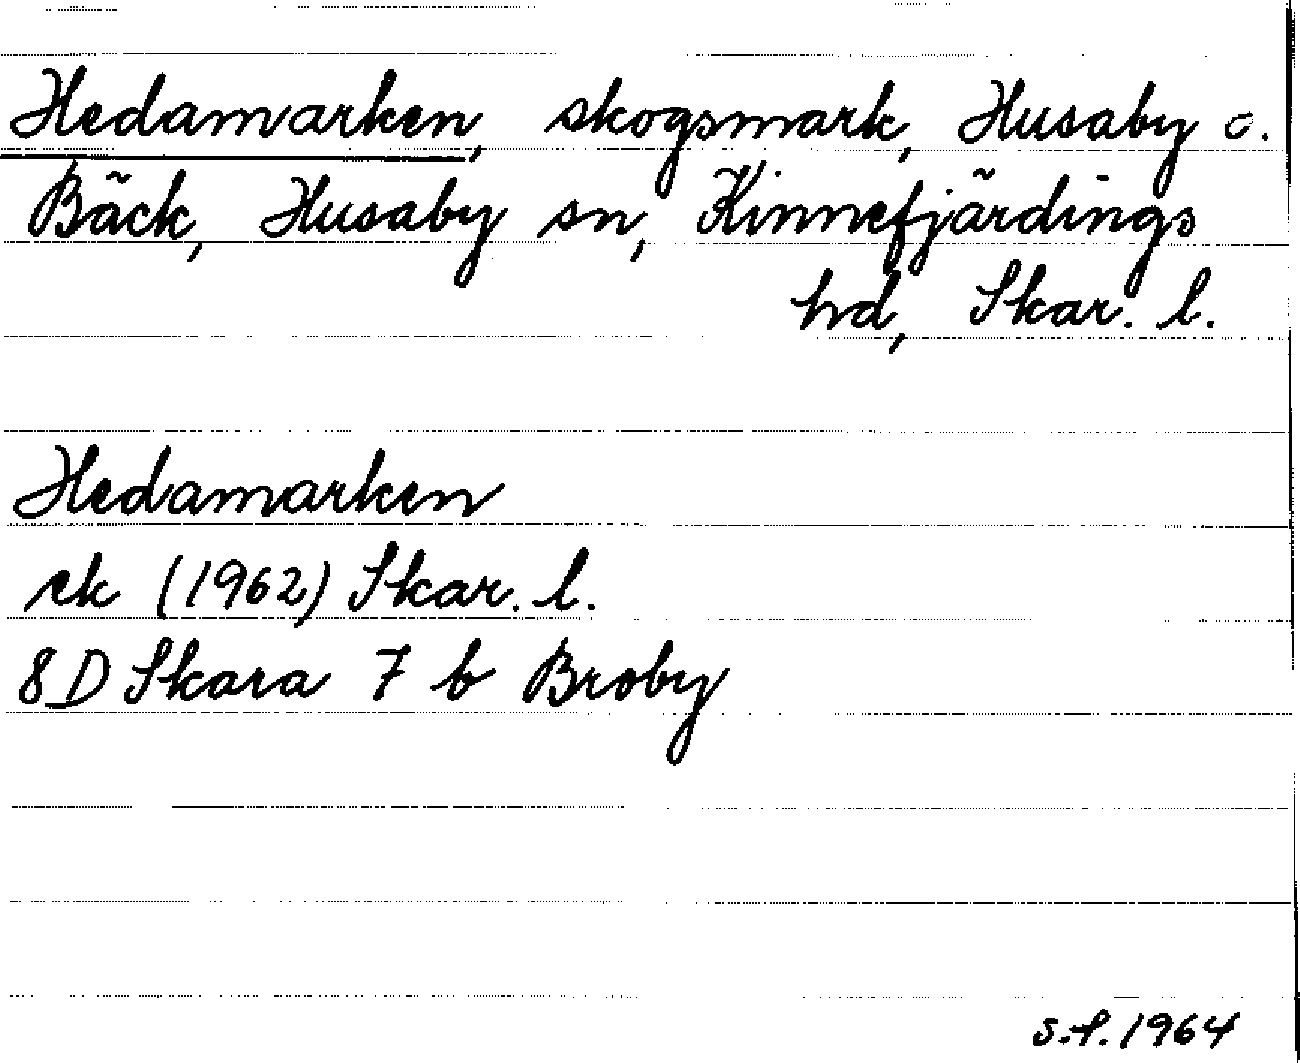 Hedamarken, skogsmark, Husaby o.
Bäck, Husaby sn, Kinnefjärdings
hd, Skar. l.
Hedamarken
ek (1962) Skar. l.
8D Skara 7 b Broby
S.f. 1964